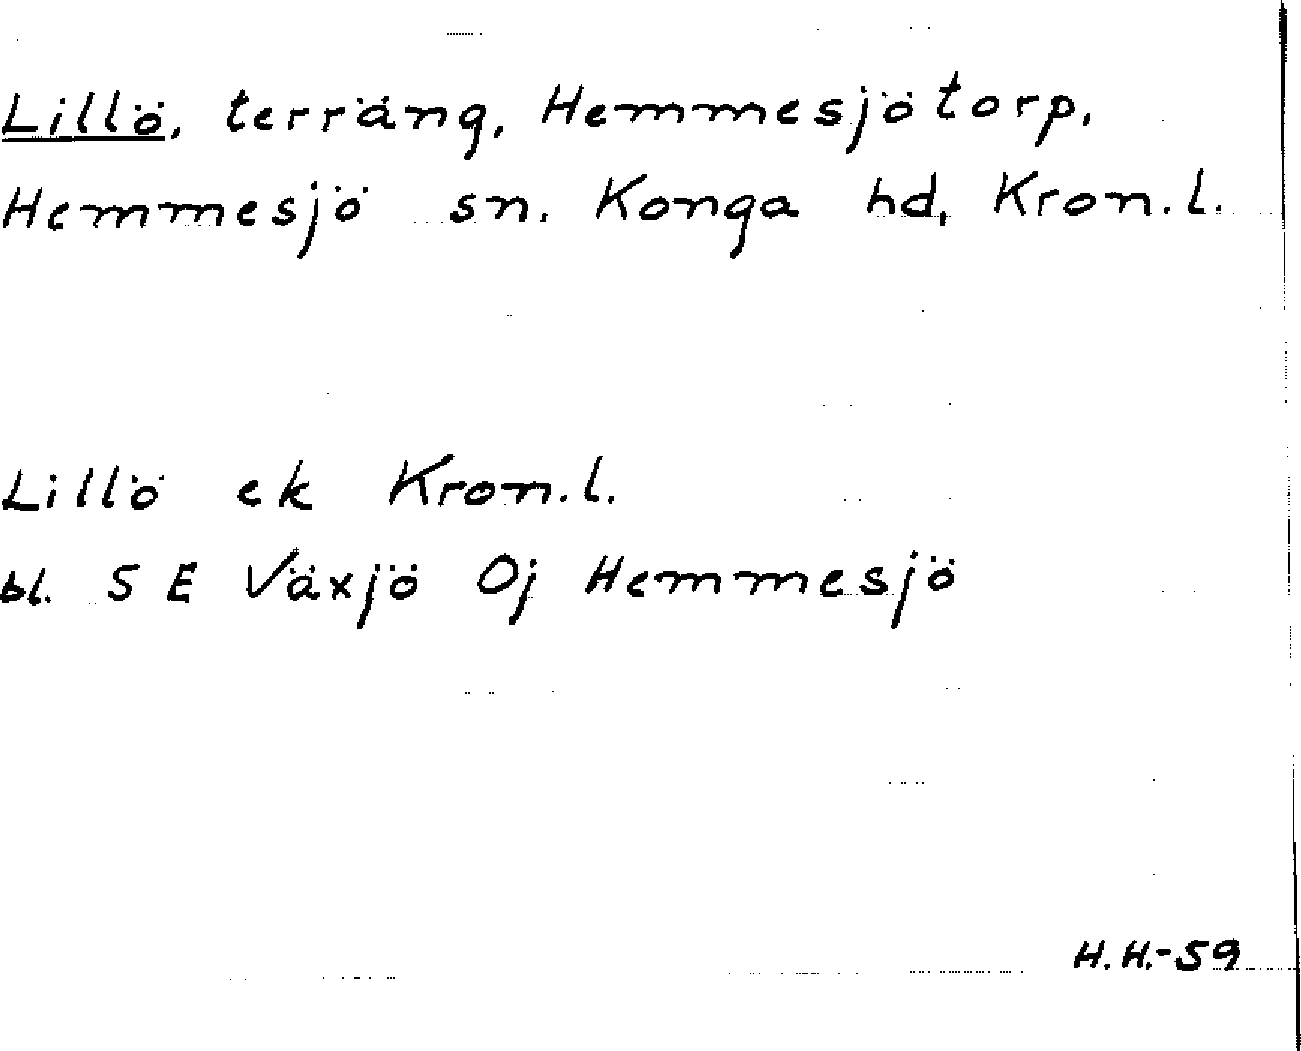 Lillö, terräng, Hemmesjötorp,
Hemmesjö sn. Konga hd, Kron.l.
Lillö ek Kron.l.
bl. S E Växjö Oj Hemmesjö
H.H.-59